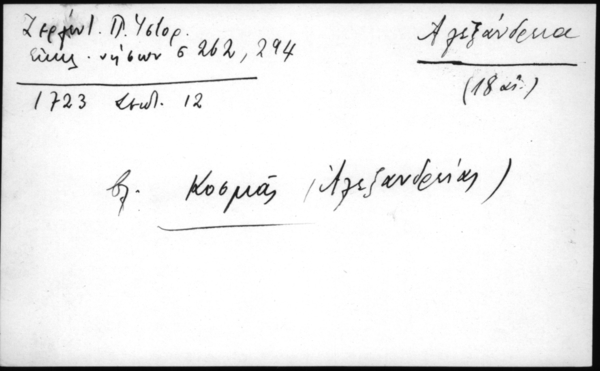 Ζερλέντ. Π. Ἱστορ.
νήσων σ 262, 294
Ἀλεξάνδρεια
(18 αἰ.)
1723 Σεπτ. 12
βλ. Κοσμᾶς (Ἀλεξανδρείας)